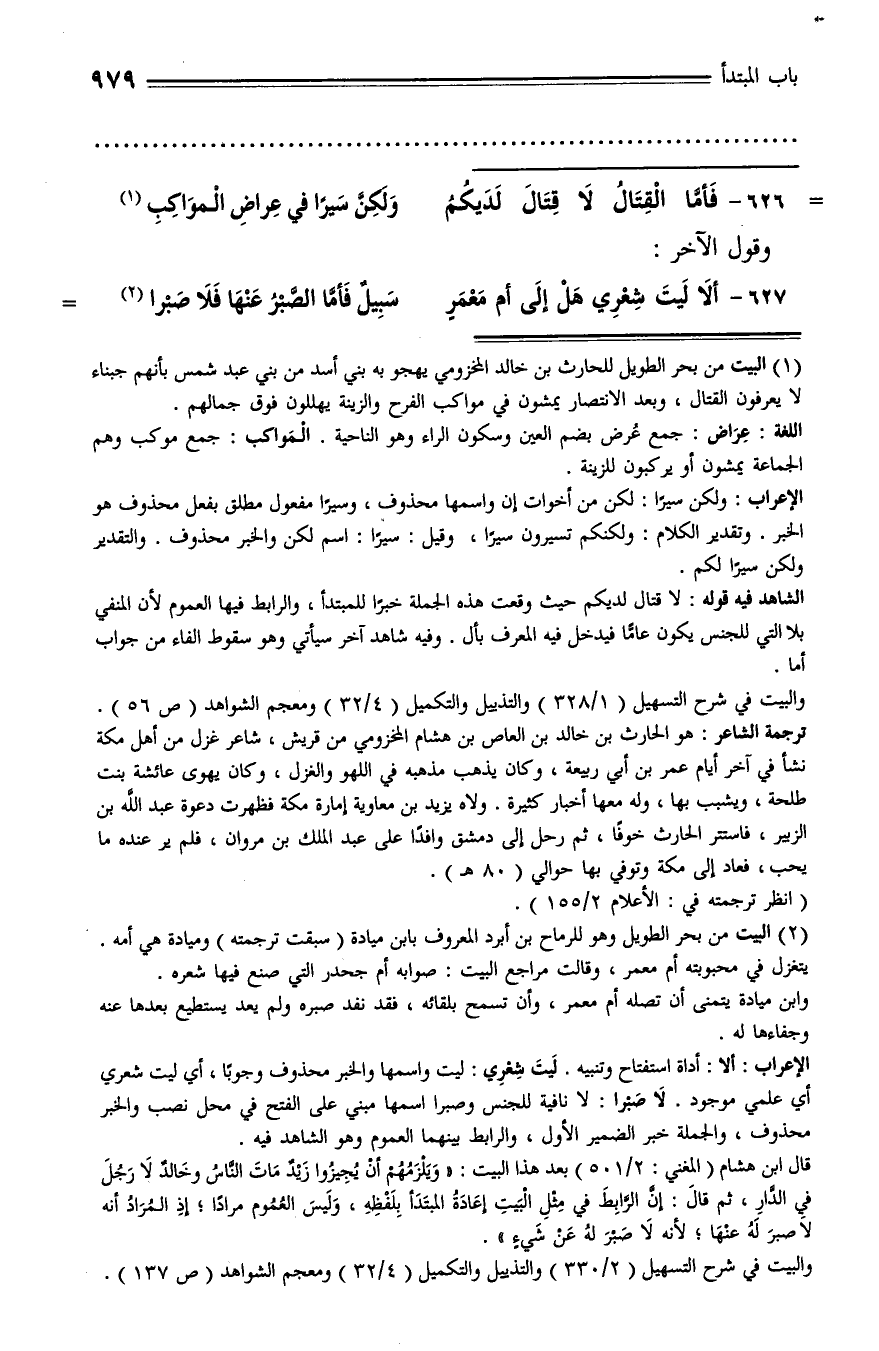 باب المبتدأ ٩٧٩
................................................................
= ٦٢٦- فَأمَّا الْقِتَالُ لَا قِتَالَ لَدَيكُمُ وَلَكِنَّ سَيرًا في عِراضِ الْموَاكِبِ (١)
وقول الآخر :
٦٢٧- ألَا لَيتَ شِعْرِي هَلْ إلَى أم مَعْمَرٍ سَبِيلٌ فَأمَّا الصَّبْرُ عَنْهَا فَلَا صَبْرا (٢) =
(١) البيت من بحر الطويل للحارث بن خالد المخزومي يهجو به بني أسد من بني عبد شمس بأنهم جبناء
لا يعرفون القتال ، وبعد الانتصار يمشون في مواكب الفرح والزينة يهللون فوق جمالهم .
اللغة : عِرَاض : جمع عُرض بضم العين وسكون الراء وهو الناحية . الْمَواكب : جمع موكب وهم
الجماعة يمشون أو يركبون للزينة .
الإعراب : ولكن سيرًا : لكن من أخوات إن واسمها محذوف ، وسيرًا مفعول مطلق بفعل محذوف هو
الخبر . وتقدير الكلام : ولكنكم تسيرون سيرًا ، وقيل : سيرًا : اسم لكن والخبر محذوف . والتقدير
ولكن سيرًا لكم .
الشاهد فيه قوله : لا قتال لديكم حيث وقعت هذه الجملة خبرًا للمبتدأ ، والرابط فيها العموم لأن المنفي
بلا التي للجنس يكون عامًّا فيدخل فيه المعرف بأل . وفيه شاهد آخر سيأتي وهو سقوط الفاء من جواب
أما .
والبيت في شرح التسهيل ( ٣٢٨/١ ) والتذييل والتكميل ( ٣٢/٤ ) ومعجم الشواهد ( ص ٥٦ ) .
ترجمة الشاعر : هو الحارث بن خالد بن العاص بن هشام المخزومي من قريش ، شاعر غزل من أهل مكة
نشأ في آخر أيام عمر بن أبي ربيعة ، وكان يذهب مذهبه في اللهو والغزل ، وكان يهوى عائشة بنت
طلحة ، ويشبب بها ، وله معها أخبار كثيرة . ولاه يزيد بن معاوية إمارة مكة فظهرت دعوة عبد اللَّه بن
الزبير ، فاستتر الحارث خوفًا ، ثم رحل إلى دمشق وافدًا على عبد الملك بن مروان ، فلم ير عنده ما
يحب ، فعاد إلى مكة وتوفي بها حوالي ( ٨٠ هـ ) .
( انظر ترجمته في : الأعلام ١٥٥/٢ ) .
(٢) البيت من بحر الطويل وهو للرماح بن أبرد المعروف بابن ميادة ( سبقت ترجمته ) وميادة هي أمه .
يتغزل في محبوبته أم معمر ، وقالت مراجع البيت : صوابه أم جحدر التي صنع فيها شعره .
وابن ميادة يتمنى أن تصله أم معمر ، وأن تسمح بلقائه ، فقد نفد صبره ولم يعد يستطيع بعدها عنه
وجفاءها له .
الإعراب : ألا : أداة استفتاح وتنبيه . لَيتَ شِعْرِي : ليت واسمها والخبر محذوف وجوبًا ، أي ليت شعري
أي علمي موجود . لَا صَبْرا : لا نافية للجنس وصبرا اسمها مبني على الفتح في محل نصب والخبر
محذوف ، والجملة خبر الضمير الأول ، والرابط بينهما العموم وهو الشاهد فيه .
قال ابن هشام ( المغني : ٥٠١/٢ ) بعد هذا البيت : « وَيَلْزَمُهُمْ أنْ يُجِيزُوا زَيْدٌ مَاتَ النَّاسُ وخَالدٌ لَا رَجُلَ
في الدَّارِ ، ثم قالَ : إنَّ الرَّابِطَ في مِثْلِ الْبَيتِ إعَادَةُ المبْتَدَأ بِلَفْظِهِ ، وَلَيسَ العُمُوم مرادًا ؛ إذِ الـمُرَادُ أنه
لَا صبرَ لَهُ عنْهَا ؛ لأنه لَا صَبْرَ لهُ عَنْ شَيءٍ » .
والبيت في شرح التسهيل ( ٣٣٠/٢ ) والتذييل والتكميل ( ٣٢/٤ ) ومعجم الشواهد ( ص ١٣٧ ) .